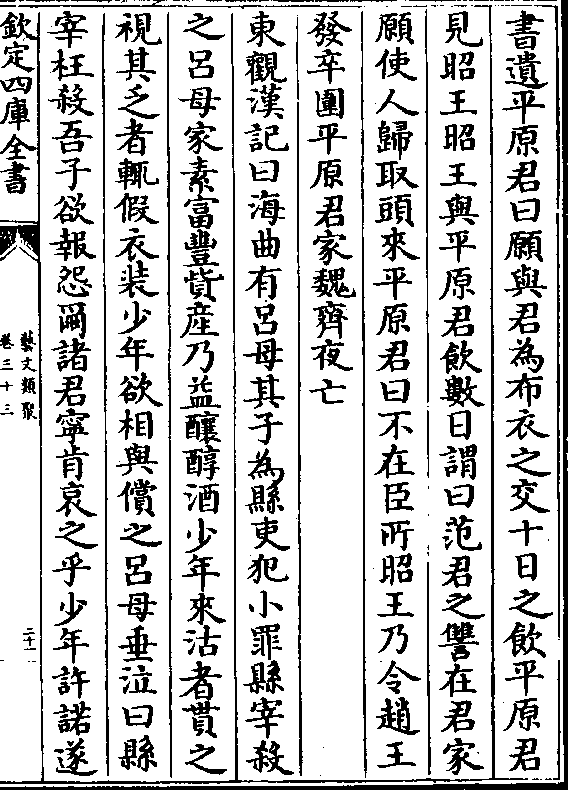 書遺平原君曰願與君為布衣之交十日之飲平原君
見昭王昭王與平原君飲數日謂曰范君之讐在君家
願使人歸取頭來平原君曰不在臣所昭王乃令趙王
發卒圍平原君家魏齊夜亡
東觀漢記曰海曲有呂母其子為縣吏犯小罪縣宰殺
之呂母家素富豐貲産乃益釀醇酒少年來沽者貰之
視其乏者輒假衣裝少年欲相與償之呂母垂泣曰縣
宰枉殺吾子欲報怨爾諸君寧肯哀之乎少年許諾遂
欽定四庫全書
藝文類聚
卷三十三
二十一